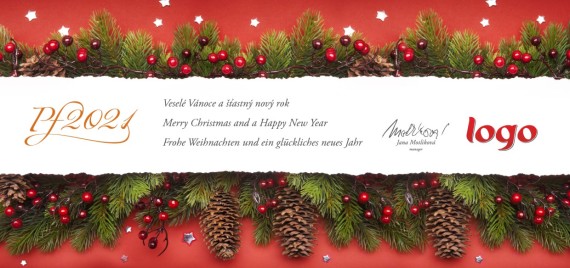 Pf 2021
Veselé Vánoce a šťastný nový rok
Merry Christmas and a Happy New Year
Frohe Weihnachten und ein glückliches neues Jahr
Jana Mošlíková
manager
logo